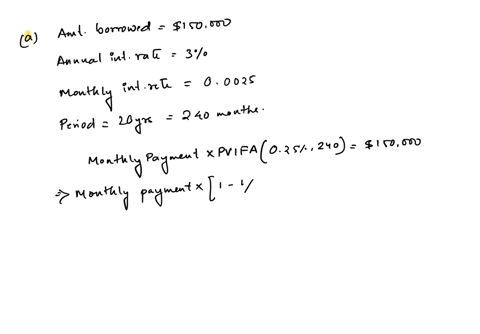 (a) Amt. borrowed = $150,000
Annual int. rate = 3%
Monthly int. rete = 0.0025
Period = 20 yrs = 240 months.
Monthly Payment × PVIFA (0.25%, 240) = $150,000
⇒ Monthly payment × [1 - 1/